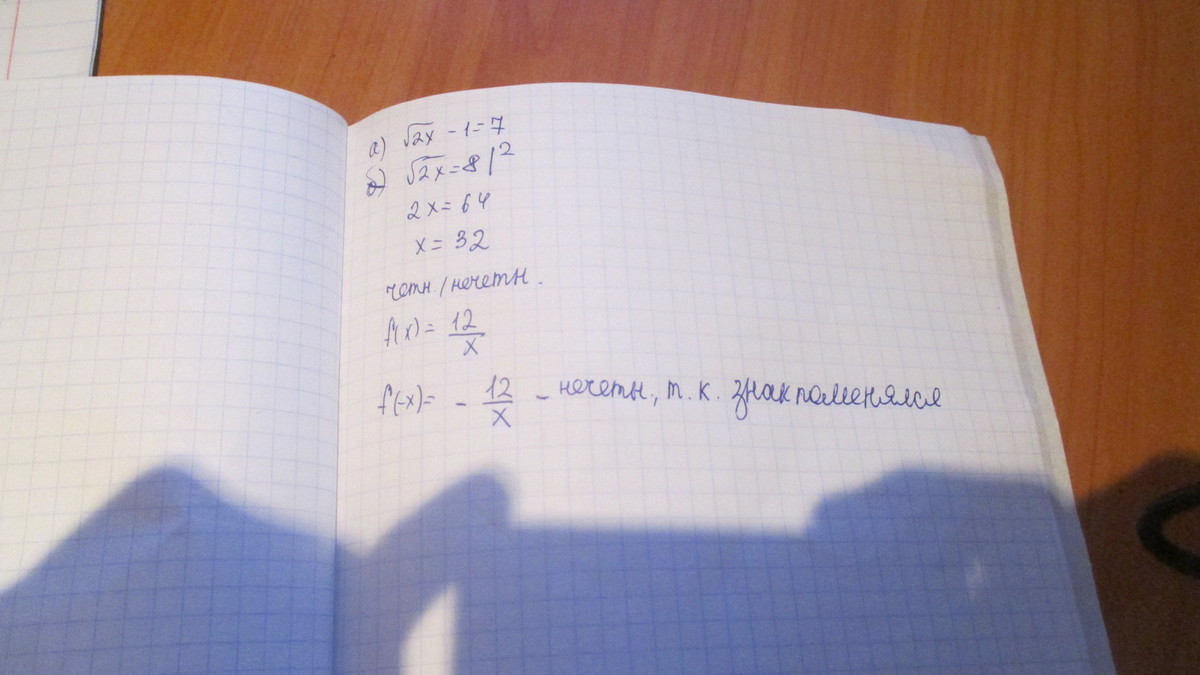 а) √2x - 1 = 7
б) √2x = 8 |²
2x = 64
x = 32
четн. / нечетн.
f(x) = 12/x
f(-x) = - 12/x - нечетн., т. к. знак поменялся